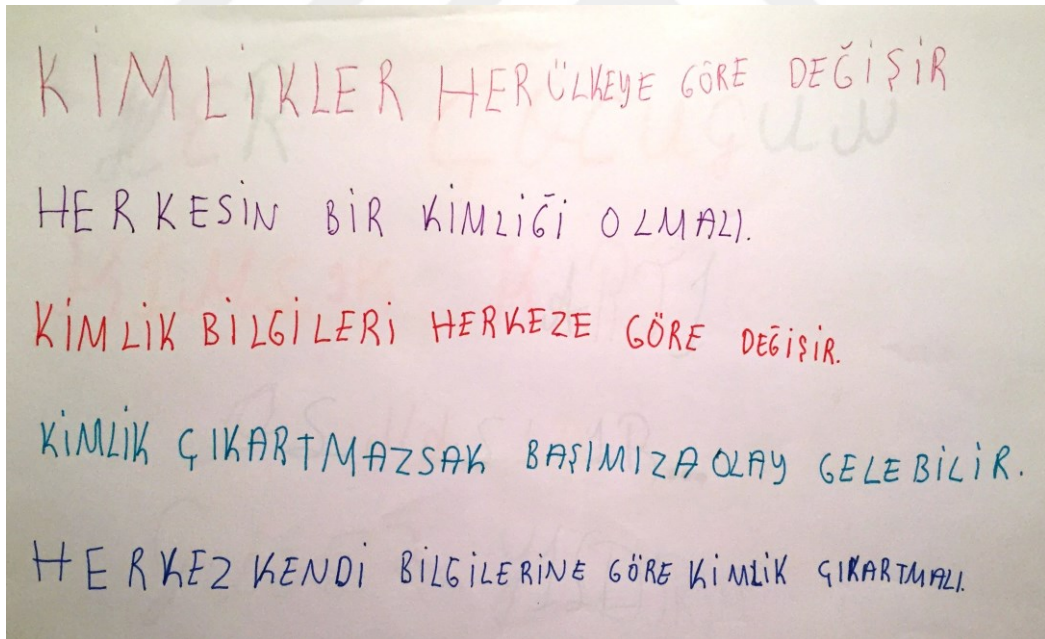 KİMLİKLER HER ÜLKEYE GÖRE DEĞİŞİR
HERKESİN BİR KİMLİĞİ OLMALI.
KİMLİK BİLGİLERİ HERKEZE GÖRE DEĞİŞİR.
KİMLİK ÇIKARTMAZSAK BAŞIMIZA OLAY GELEBİLİR.
HERKEZ KENDİ BİLGİLERİNE GÖRE KİMLİK ÇIKARTMALI.